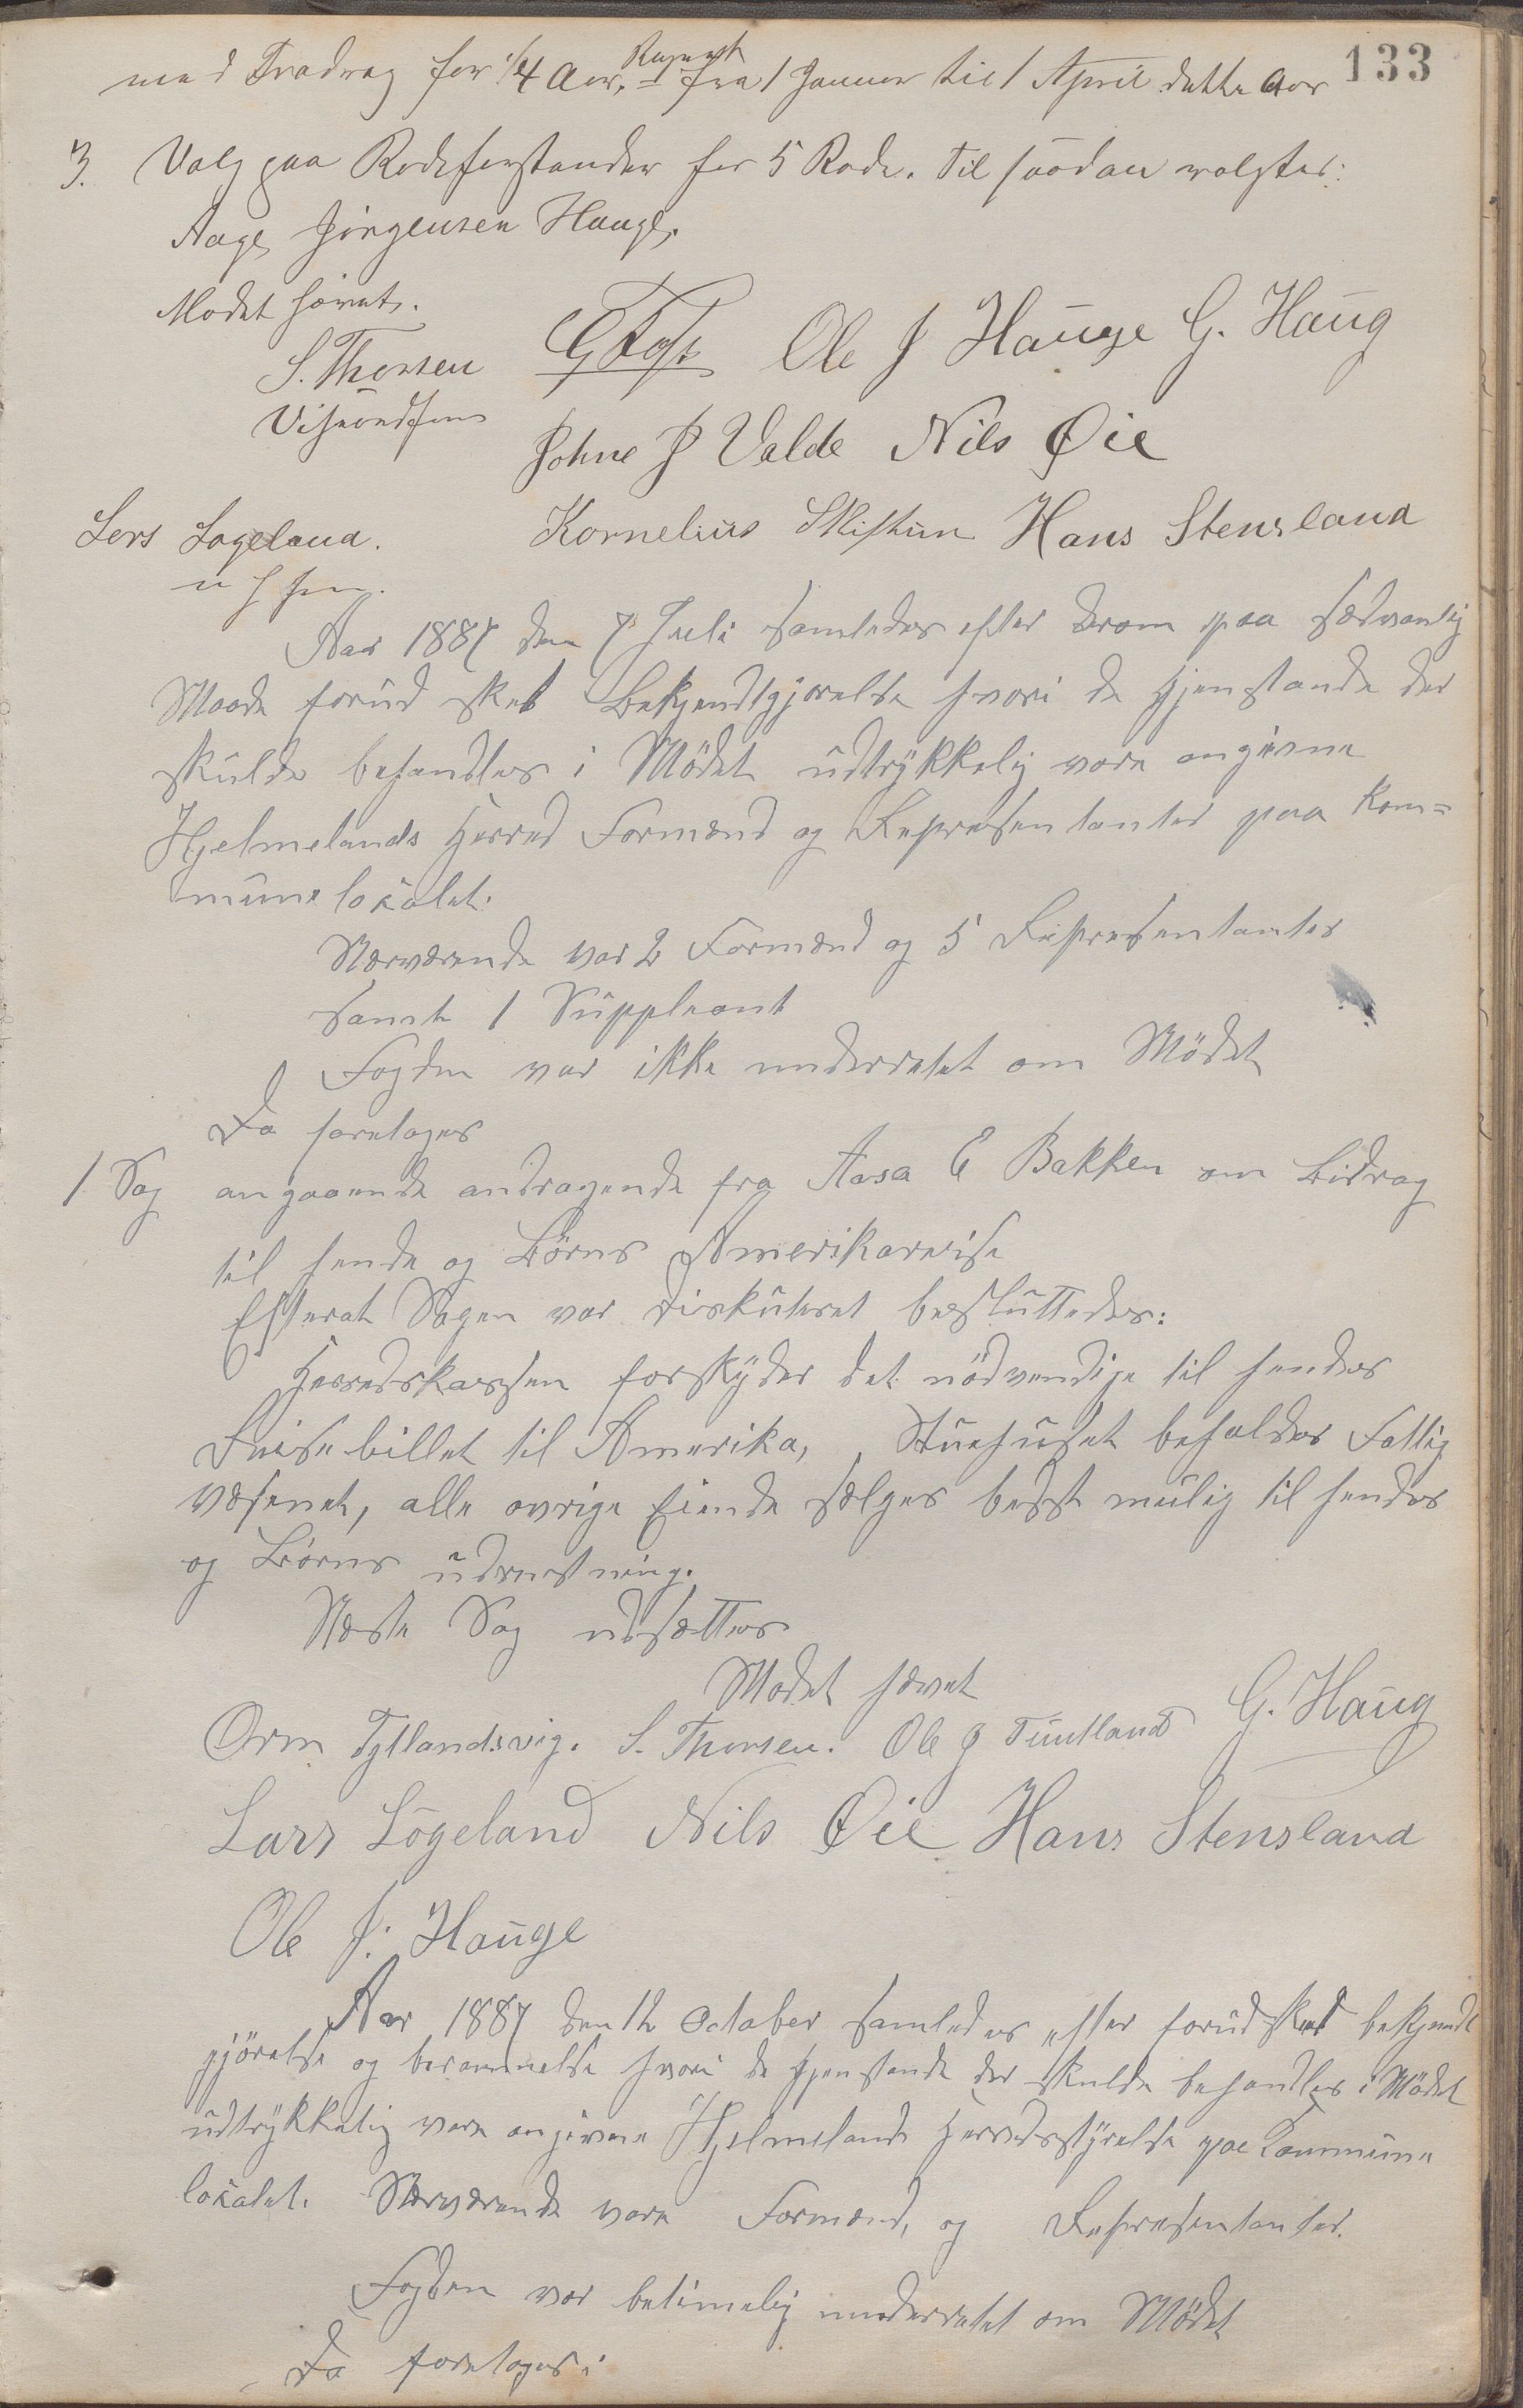 133
med Fradrag for 1/4 Aar, fra 1 Januar til 1 April dette Aar
3. Valg paa Rodeforstander for 5 Rode. Til saadan valgtes:
Aage Jörgensen Hauge.
Mødet hævet.
S. Thorsen Ole J Hauge G. Haug
Viseordfører
Johne J Valde Nils Øie
Lars Lögeland. Kornelius Skiftun Hans Stensland
Aar 1887 den 7 Juli samledes efter derom paa sædvanlig
Maade forud sket Bekjendtgjørelse hvori de Gjenstande der
skulde behandles i Mödet udtrykkelig vare angivne
Hjelmelands Herred Formænd og Repræsentanter paa Kom=
munelokalet.
Nærværende var 2 Formænd og 5 Repræsentanter
samt 1 Suppleant
Fogden var ikke underrettet om Mödet
Da foretoges
1 Sag angaaende andragende fra Aasa E Bakken om Bidrag
til hende og Börns Amerikareise
Efterat Sagen var diskuteret besluttedes:
Herredskassen forskyder det nödvendige til hendes
Reisebillet til Amerika, Stuehuset beholdes Fattig
væsenet, alle øvrige Eiende sælges bedst mulig til hendes
og Börns udrustning.
Næste Sag udsættes
Mødet hævet
Orm Tytlandsvig. S. Thorsen. Ole J Tuntland G. Haug
Lars Lögeland Nils Øie Hans Stensland
Ole J. Hauge
Aar 1887 den 12 October samledes efter forud sket bekjendt
gjörelse og berammelse hvori de Gjenstande der skulde behandles i Mödet
udtrykkelig vare angivne Hjelmelands Herredsstyrelse paa Kommune
lokalet. Nærværende vare Formænd, og Repræsentanter.
Fogden var betimelig underrettet om Mödet
Da foretoges: